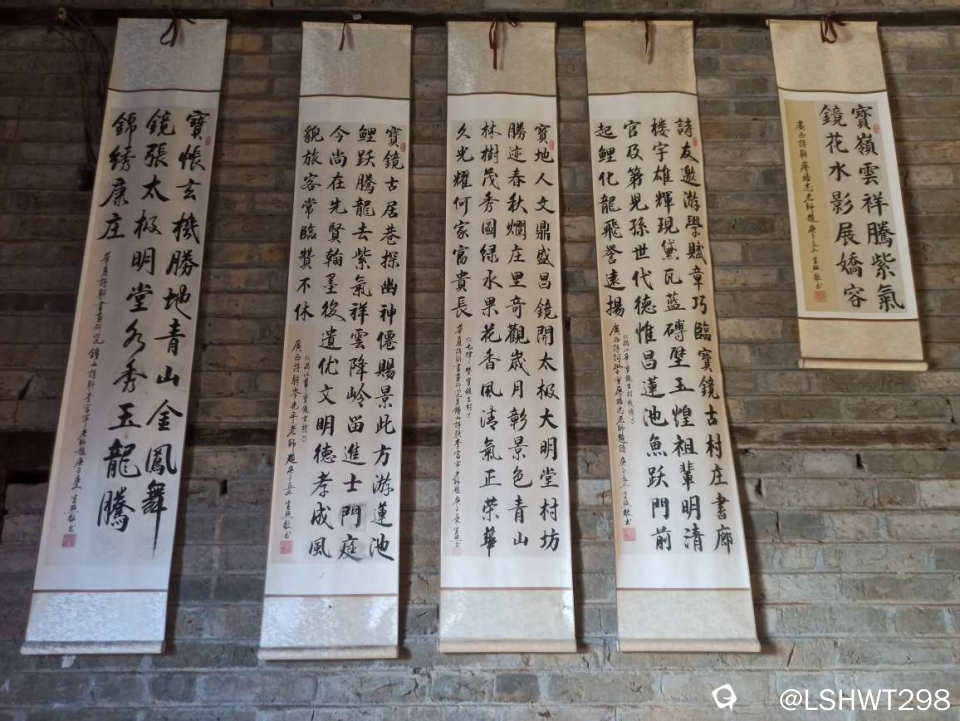 寶嶺雲祥騰紫氣
鏡花水影展嬌容
廣西詩聯廖培忠老師題
詩友邀游學賦章巧臨寶鏡古村庄書廊
楼宇雄輝現黛瓦蓝磚壁玉煌祖輩明清
官及第児孫世代德惟昌蓮池魚跃門前
起鲤化龍飛誉遠揚
寶地人文鼎盛昌鏡開太极大明堂村坊
勝迹春秋爛庄里奇觀歲月彰景色青山
林樹茂秀園绿水果花香風清氣正荣華
久光耀何家富貴長
寶鏡古居巷探幽神僊賜景此方游蓮池
鲤跃騰龍去紫氣祥雲降岭留進士門庭
今尚在先賢翰墨後遺优文明德孝成風
貌旅客常臨贊不休
寶帳玄機勝地青山金鳳舞
鏡張太极明堂水秀玉龍騰
錦绣康庄
@LSHWT298